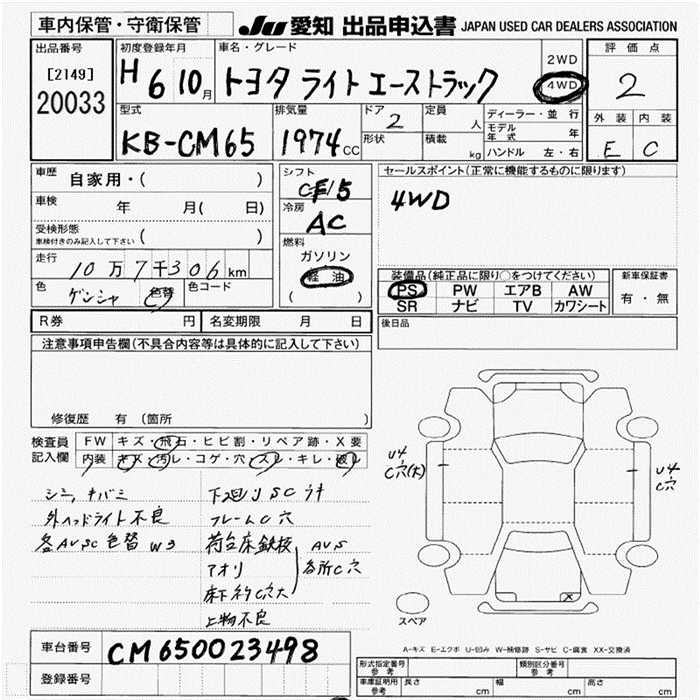 車内保管・守衛保管
JU 愛知 出品申込書 JAPAN USED CAR DEALERS ASSOCIATION
出品番号
[2149]
20033
初度登録年月
H 6 10月
車名・グレード
トヨタ ライト エーストラック
2WD
4WD
評価点
2
外装 内装
E C
型式
KB-CM65
排気量
1974cc
ドア
2
形状
定員
人
積載
kg
ディーラー・並行
モデル年式 年
ハンドル 左・右
車歴 自家用・( )
車検 年 月( 日)
受検形態
車検付きのみ記入して下さい ( )
走行 10万7千306km
色 色替 色コード
シフト
冷房
AC
燃料
ガソリン
軽油
( )
セールスポイント(正常に機能するものに限ります)
4WD
装備品(純正品に限り○をつけてください)
PS PW エアB AW
SR ナビ TV カワシート
新車保証書
有・無
R券 円 名変期限 月 日
後日品
注意事項申告欄(不具合内容等は具体的に記入して下さい)
修復歴 有 (箇所 )
検査員記入欄
FW キズ・飛石・ヒビ割・リペア跡・X要
内装 キズ・汚レ・コゲ・穴・スレ・キレ・破レ
シミ、キバミ
外ヘッドライト不良
各AUSC色替 W3
下回リSCサキ
フレームC穴
荷台床鉄板
アオリ
床下行C穴大
AUS
各所C穴
上物不良
U4
C穴(大)
U4
C穴
X
スペア
A-キズ E-エクボ U-凹み W-補修跡 S-サビ C-腐食 XX-交換済
車台番号 CM650023498
登録番号
形式指定番号 参考
類別区分番号 参考
車庫証明用 参考 長さ cm 幅 cm 高さ cm